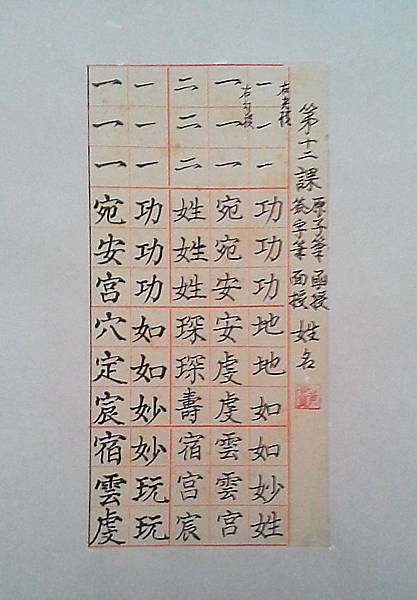 第十二課
原子筆 函授
簽字筆 面授
姓名
右尖橫
一一一功功功地地如如妙姓
右勾橫
一一一宛宛安安虔虔雲雲宮
二二二姓姓姓琛琛壽宿宮宸
一一一功功功如如妙妙玩玩
一一一宛安宮穴定宸宿雲虔